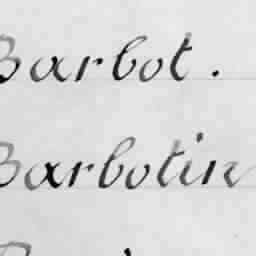 Barbot.
Barbotin